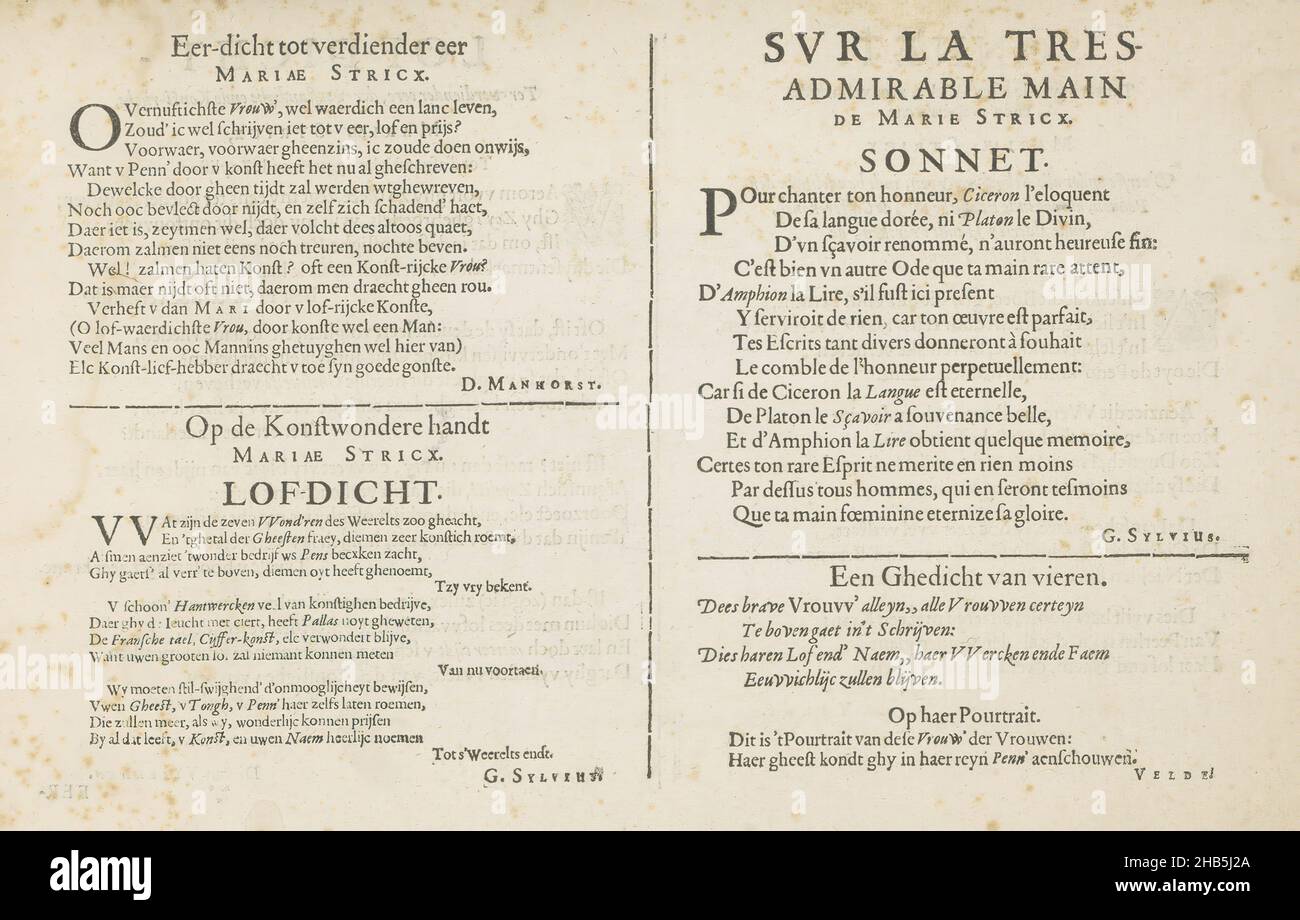 Eer-dicht tot verdiender eer
MARIAE STRICX.
OVernuftichſte Vrouw', wel waerdich een lanc leven,
Zoud' ic wel ſchrijven iet tot v eer, lof en prijs?
Voorwaer, voorwaer gheenzins, ic zoude doen onwijs,
Want v Penn' door v konſt heeft het nu al gheſchreven:
Dewelcke door gheen tijdt zal werden wtghewreven,
Noch ooc bevlect door nijdt, en zelf zich ſchadend' haet,
Daer iet is, zeytmen wel, daer volcht dees altoos quaet,
Daerom zalmen niet eens noch treuren, nochte beven.
Wel! zalmen haten Konſt? oft een Konſt-rijcke Vrou?
Dat is maer nijdt oft niet, daerom men draecht gheen rou.
Verheft v dan MARI door v lof-rijcke Konſte,
(O lof-waerdichſte Vrou, door konſte wel een Man:
Veel Mans en ooc Mannins ghetuyghen wel hier van)
Elc Konſt-lief-hebber draecht v toe ſyn goede gonſte.
D. MANHORST.
Op de Konſtwondere handt
MARIAE STRICX.
LOF-DICHT.
VVAt zijn de zeven VVond'ren des Weerelts zoo gheacht,
En 'tghetal der Gheeſten fraey, diemen zeer konſtich roemt,
Aſmen aenziet 'twonder bedrijf ws Pens becxken zacht,
Ghy gaetſ' al verr' te boven, diemen oyt heeft ghenoemt,
Tzy vry bekent.
V ſchoon' Hantwercken veel van konſtighen bedrijve,
Daer ghy de Ieucht met ciert, heeft Pallas noyt gheweten,
De Franſche tael, Cijffer-konſt, elc verwondert blijve,
Want uwen grooten lof zal niemant konnen meten
Van nu voortaen.
Wy moeten ſtil-ſwijghend' d'onmooglijcheyt bewijſen,
Vwen Gheeſt, v Tongh, v Penn' haer zelfs laten roemen,
Die zullen meer, als wy, wonderlijc konnen prijſen
By al dat leeft, v Konſt, en uwen Naem heerlijc noemen
Tot s'Weerelts endt.
G. SYLVIUS.
SVR LA TRES-
ADMIRABLE MAIN
DE MARIE STRICX.
SONNET.
POur chanter ton honneur, Ciceron l'eloquent
De ſa langue dorée, ni Platon le Divin,
D'vn ſçavoir renommé, n'auront heureuſe fin:
C'eſt bien vn autre Ode que ta main rare attent,
D'Amphion la Lire, s'il fuſt ici preſent
Y ſerviroit de rien, car ton œuvre eſt parfait,
Tes Eſcrits tant divers donneront à ſouhait
Le comble de l'honneur perpetuellement:
Car ſi de Ciceron la Langue eſt eternelle,
De Platon le Sçavoir a ſouvenance belle,
Et d'Amphion la Lire obtient quelque memoire,
Certes ton rare Eſprit ne merite en rien moins
Par deſſus tous hommes, qui en ſeront teſmoins
Que ta main fœminine eternize ſa gloire.
G. SYLVIUS.
Een Ghedicht van vieren.
Dees brave Vrouvv' alleyn,, alle Vrouvven certeyn
Te boven gaet in't Schrijven:
Dies haren Lof end' Naem,, haer VVercken ende Faem
Eeuvvichlijc zullen blijven.
Op haer Pourtrait.
Dit is 't Pourtrait van deſe Vrouw' der Vrouwen:
Haer gheeſt kondt ghy in haer reyn Penn' aenſchouwen.
VELDE.
alamy
Image ID: 2HB5J2A
www.alamy.com